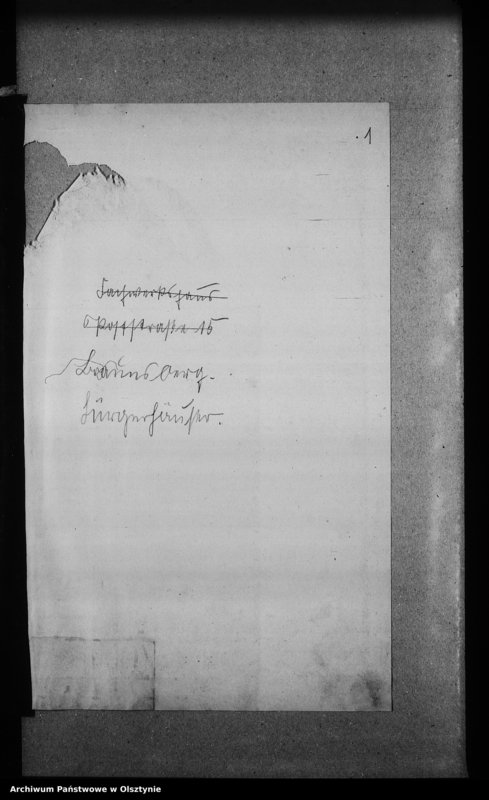 . 1
Fachwerkshaus
Poststraße 15
Braunsberg.
Bürgerhäuser.
Archiwum Państwowe w Olsztynie